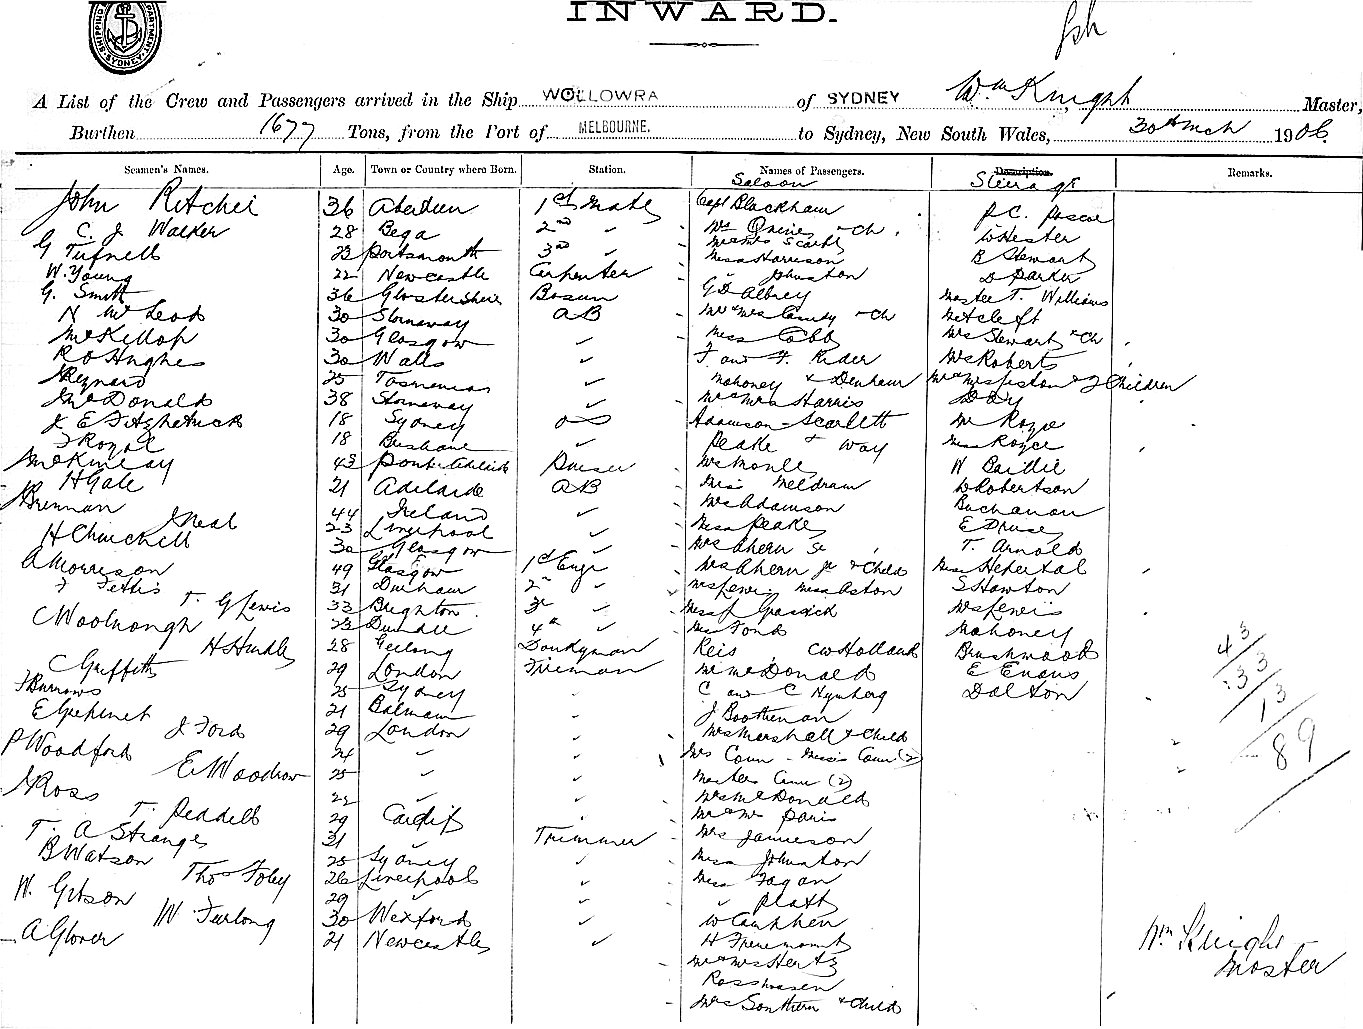 SHIPPING DEPARTMENT. SYDNEY
INWARD.
A List of the Crew and Passengers arrived in the Ship WOLLOWRA of SYDNEY Wm Knight, Master,
Burthen 1677 Tons, from the Port of MELBOURNE. to Sydney, New South Wales, 30th Mch 1906.
Seamen's Names. Age. Town or Country where Born. Station. Names of Passengers. Description. Remarks.
Saloon Steerage
John Ritchie 36 Aberdeen 1st Mate Capt Blackham P.C. Pascoe
C. J Walker 28 Bega 2nd ✓ Mrs & Ch. W Hester
G Tufnell 23 Portsmouth 3rd ✓ Mr & Mrs Scarfe B Stewart
W. Young 22 Newcastle Carpenter Miss Harrison D Parker
G. Smith 36 Glostershire Bosun ✓ Johnston Master T. Williams
N McLeod 30 Stornaway AB G D Albrey Metcleft
McKillop 30 Glasgow ✓ Mr & Mrs & Ch Mrs Stewart & Ch
R O Hughes 30 Walls ✓ Miss Cobb Mrs Roberts
Reynard 25 Tasmania ✓ F and F. Rider Mr & Mrs & 2 Children
McDonald 38 Stornaway ✓ Mahoney & Denham Day
J E Fitzpatrick 18 Sydney OS Mr & Mrs Harris Mr Royce
J Royal 18 Brisbane ✓ Adamson - Scarlett Miss Royce
McKinlay 43 Port Adelaide Peake & Way W Baillie
H Gale 21 Adelaide AB W Robertson
J Brennan 44 Ireland ✓ Miss Meldram Buchanan
J Neal 23 Liverpool ✓ Mrs Adamson E Druse
H Churchill 30 Glasgow ✓ Miss Peake T. Arnold
A Morrison 49 Glasgow 1st Engr Mrs Ahern Sr Miss
J Fettis 31 Durham 2nd ✓ Mrs Ahern Jr & Child S Hawton
T. G Lewis 33 Brighton 3r ✓ Mrs Lewis Miss Aston Mrs Lewis
C Woolnough 23 Dundee 4th ✓ Miss J Mahoney
H Hundley 28 Geelong Donkyman Miss Ford Brushwood
C Griffith 29 London Fireman Reis CW Holland E Evans
J Burrows 25 Sydney ✓ Mr McDonald Dalton
E 21 Balmain ✓ C and C Nymberg
J Ford 29 London ✓ J Bootheman
P Woodford 24 ✓ ✓ Mrs Marshall & Child
E Woodrow 25 ✓ ✓ Mrs Conn - Misses Conn (2)
J Ross 22 ✓ ✓ Masters Conn (2)
T. Peddell 29 Cardiff ✓ Mrs McDonald
T. A Strange 31 ✓ Trimmer Mr & Mrs Davis
B Watson 25 Sydney ✓ Mrs Jamieson
Thos Foley 26 Liverpool ✓ Miss Johnston
W. Gibson 29 ✓ ✓ Miss Fagan
W Furlong 30 Wexford ✓ ✓ Platt
A Glover 21 Newcastle ✓
H
Mr & Mrs Hertz
Mrs Southern & Child
43
33
13
89
Wm Knight
Master